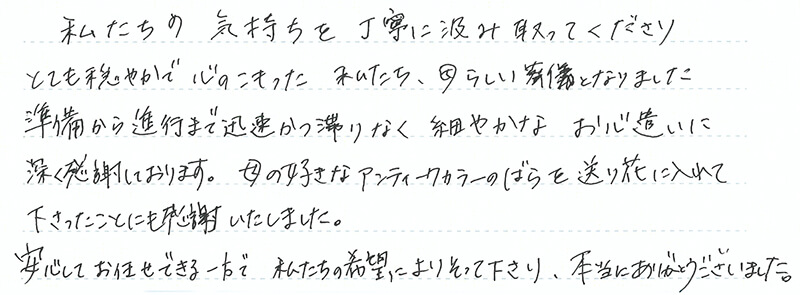 私たちの 気持ちを 丁寧に汲み取ってくださり
とても穏やかで 心のこもった 私たち、母らしい葬儀となりました
準備から進行まで迅速かつ滞りなく 細やかな お心遣いに
深く感謝しております。母の好きなアンティークカラーのばらを送り花に入れて
下さったことにも感謝いたしました。
安心してお任せできる一方で 私たちの希望によりそって下さり、本当にありがとうございました。